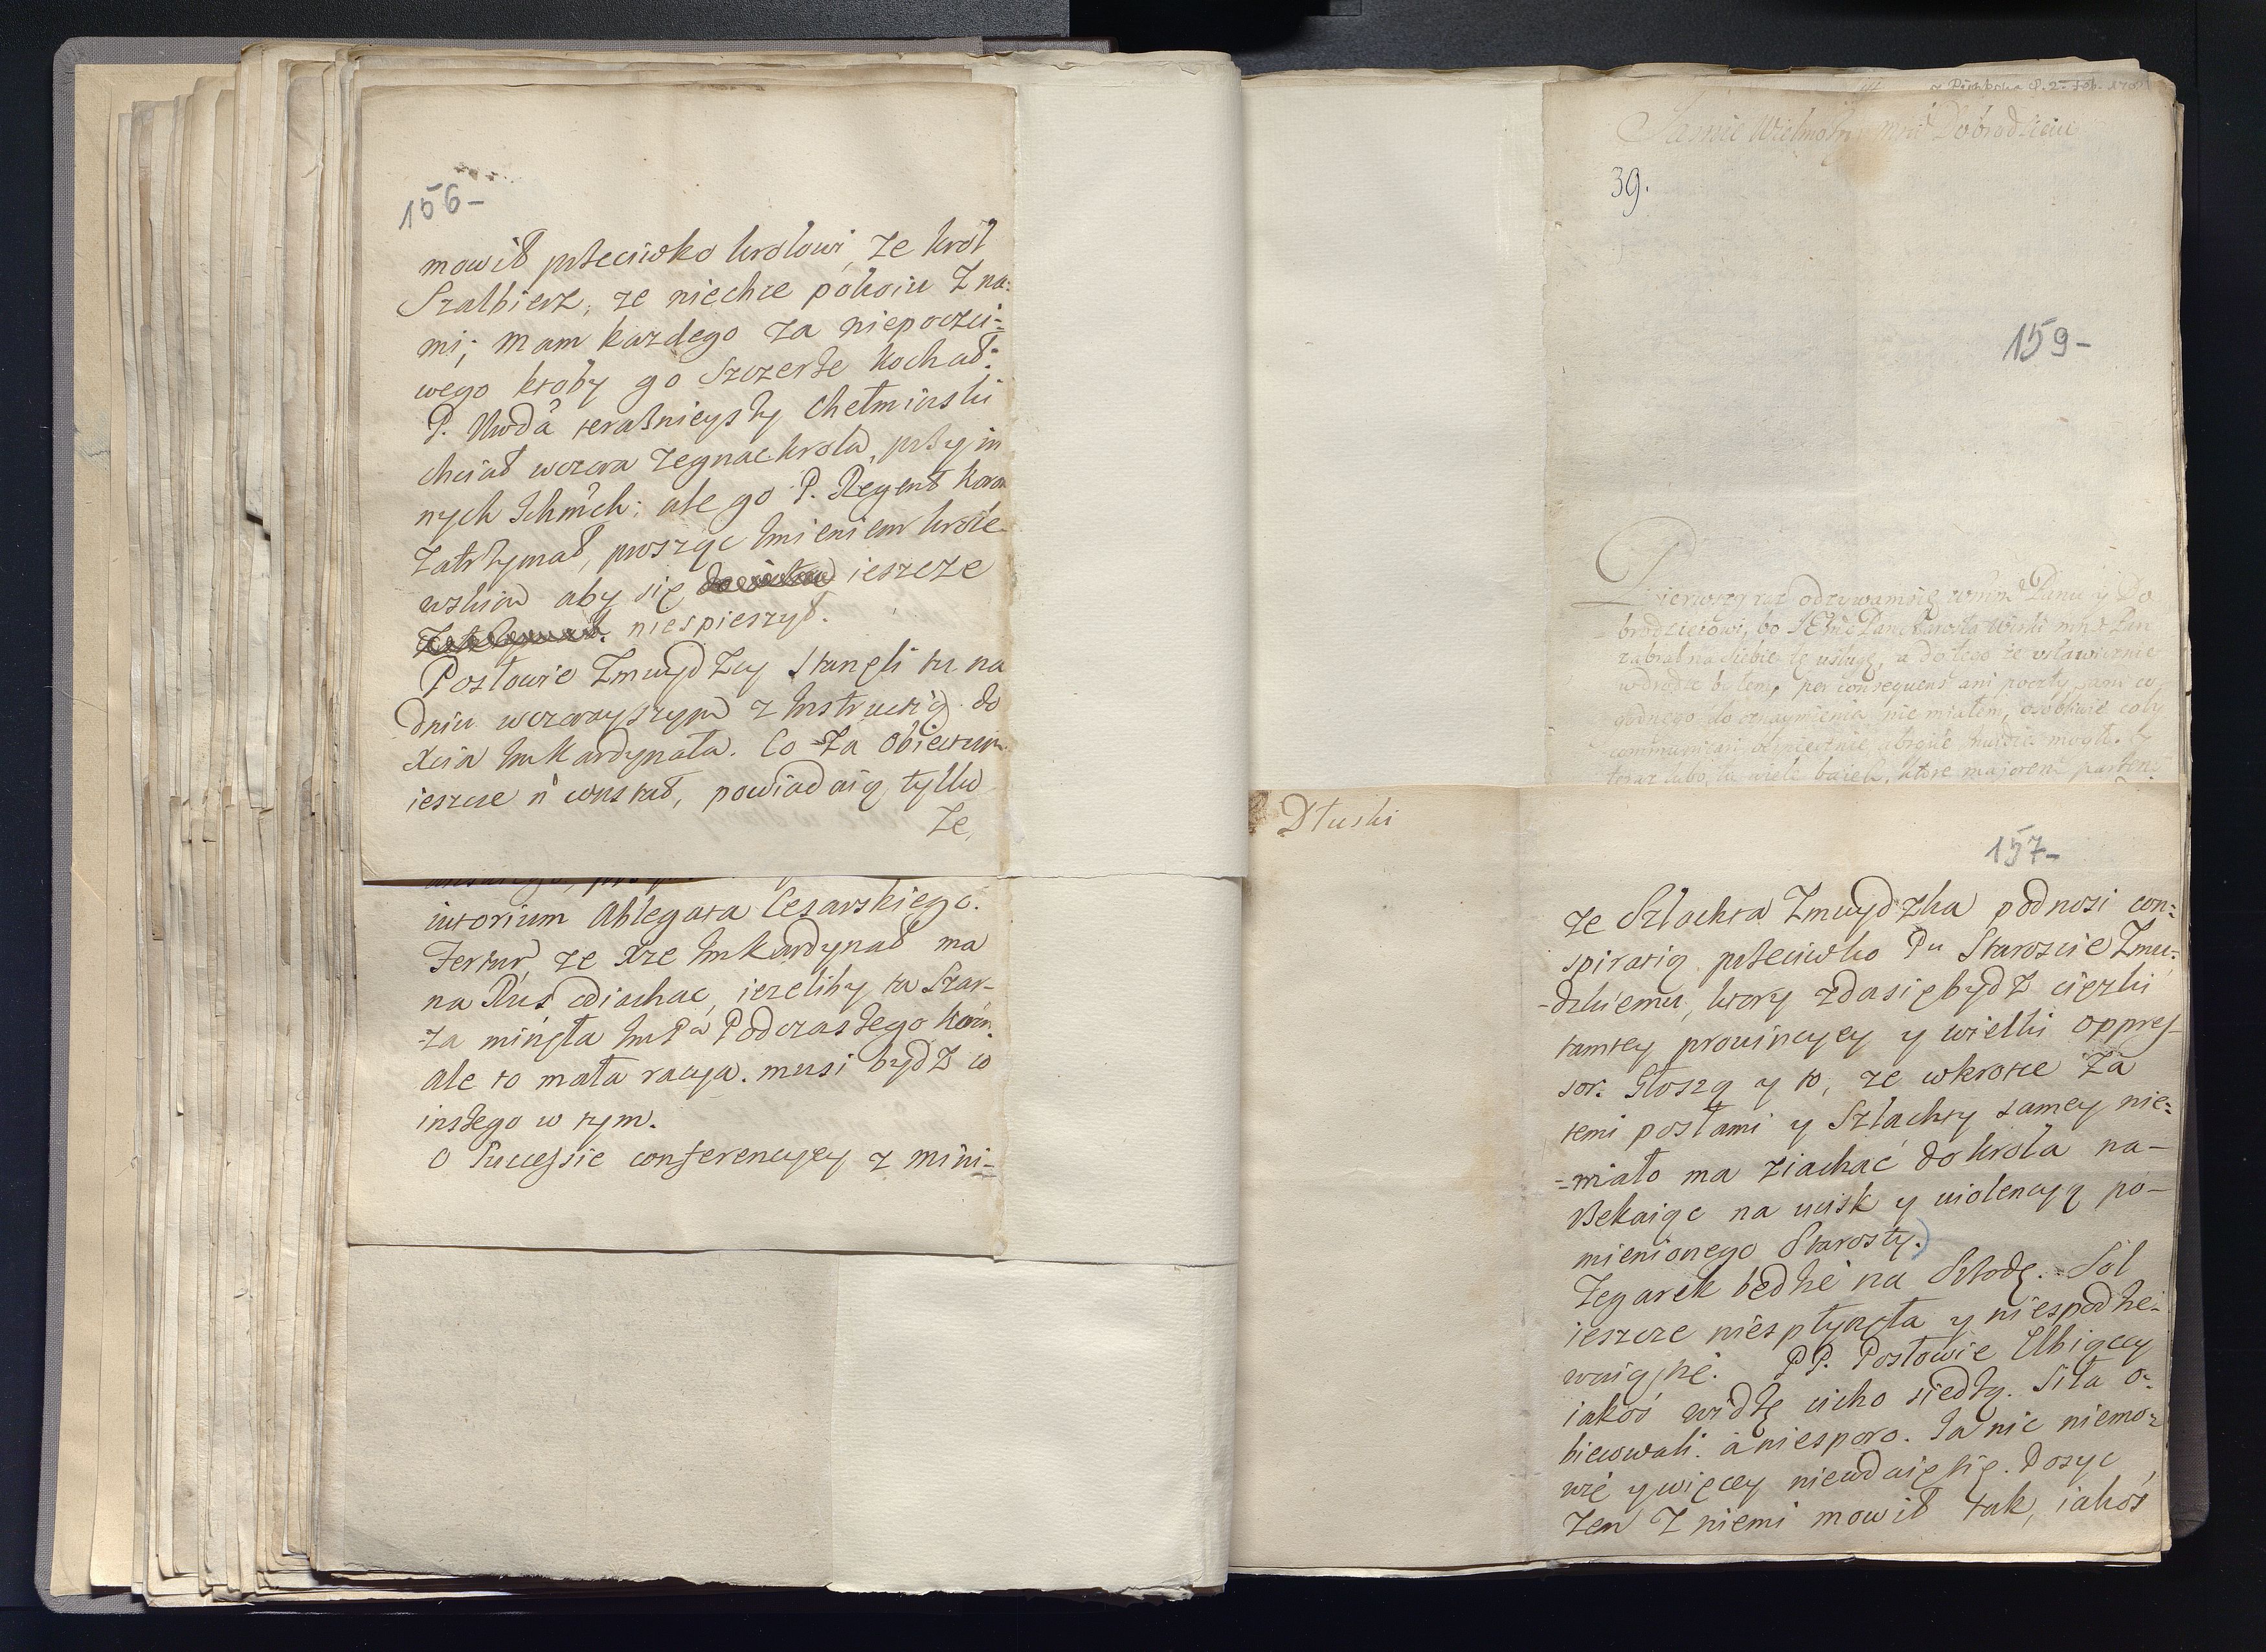 156-
mowił przeciwko krolowi, ze krol
Szalbierz, ze niechce pokoiu z na:
mi; mam kazdego za niepoczci=
wego ktoby go szczerze kochał.
P. Wwda terasnieyszy Chełminski
chciał wczora zegnac krola, przy in
nych Ichmch: ale go P. Regent Koron
zatrzymał, prosząc Imieniem krole
wskim aby się ieszcze
niespieszył.
Posłowie Zmuydzcy stanęli tu na
dniu wczorayszym z Instructią do
Xcia Im Kardynała. Co za obiectum
ieszcze ń constat, powiadaią tylko
ze,
intorium Ablegata Cesarskiego.
Fertur, ze Xze Im Kardynał ma
na Rus odiachac, iezeliby ta Szar-
za minęła ImPa Podczaszego Koron.
ale to mała racya. musi bydz co
inszego w tym.
O Successie conferencyey z mini=
z Piotrkowa d. 2 Feb. 170
Jasnie Wielmozny mnie Dobrodzieiu
39.
159-
Pierwszy raz odzywam się wmm Panu y Do
brodzieiowi, bo Pan Starosta mnie Pan
zabrał na siebie tę usługę, a do tego ze ustawicznie
w drodze byłem, per consequens ani poczty, ani co
godnego do oznaymienia nie miałem, osobliwie coby
communicari
teraz lubo tu wiele baiek, ktore majorem partem
Dłuski
157-
ze Szlachta Zmuydzka podnosi con=
spiratią przeciwko Pu Staroscie Zmu:
-dzkiemu, ktory zda się bydz cięzki
tamtey prouincyey y wielki oppres
sor. Głoszą y to, ze wkrotce za
temi posłami y Szlachty samey nie=
=mało ma ziachać do krola na-
rzekaiąc na ucisk y uiolencyą po-
mienionego Starosty.
Zegarek będzie na Szrodę. Sol
ieszcze niespłynęła y niespodzie-
waią się. PP. Posłowie Elbiący
iakoś widzę cicho siedzą. Siła o=
biecowali. a niesporo. Ja nic niemo=
wię y więcey nieudaię się. Dosyc,
zem z niemi mowił tak, iakos